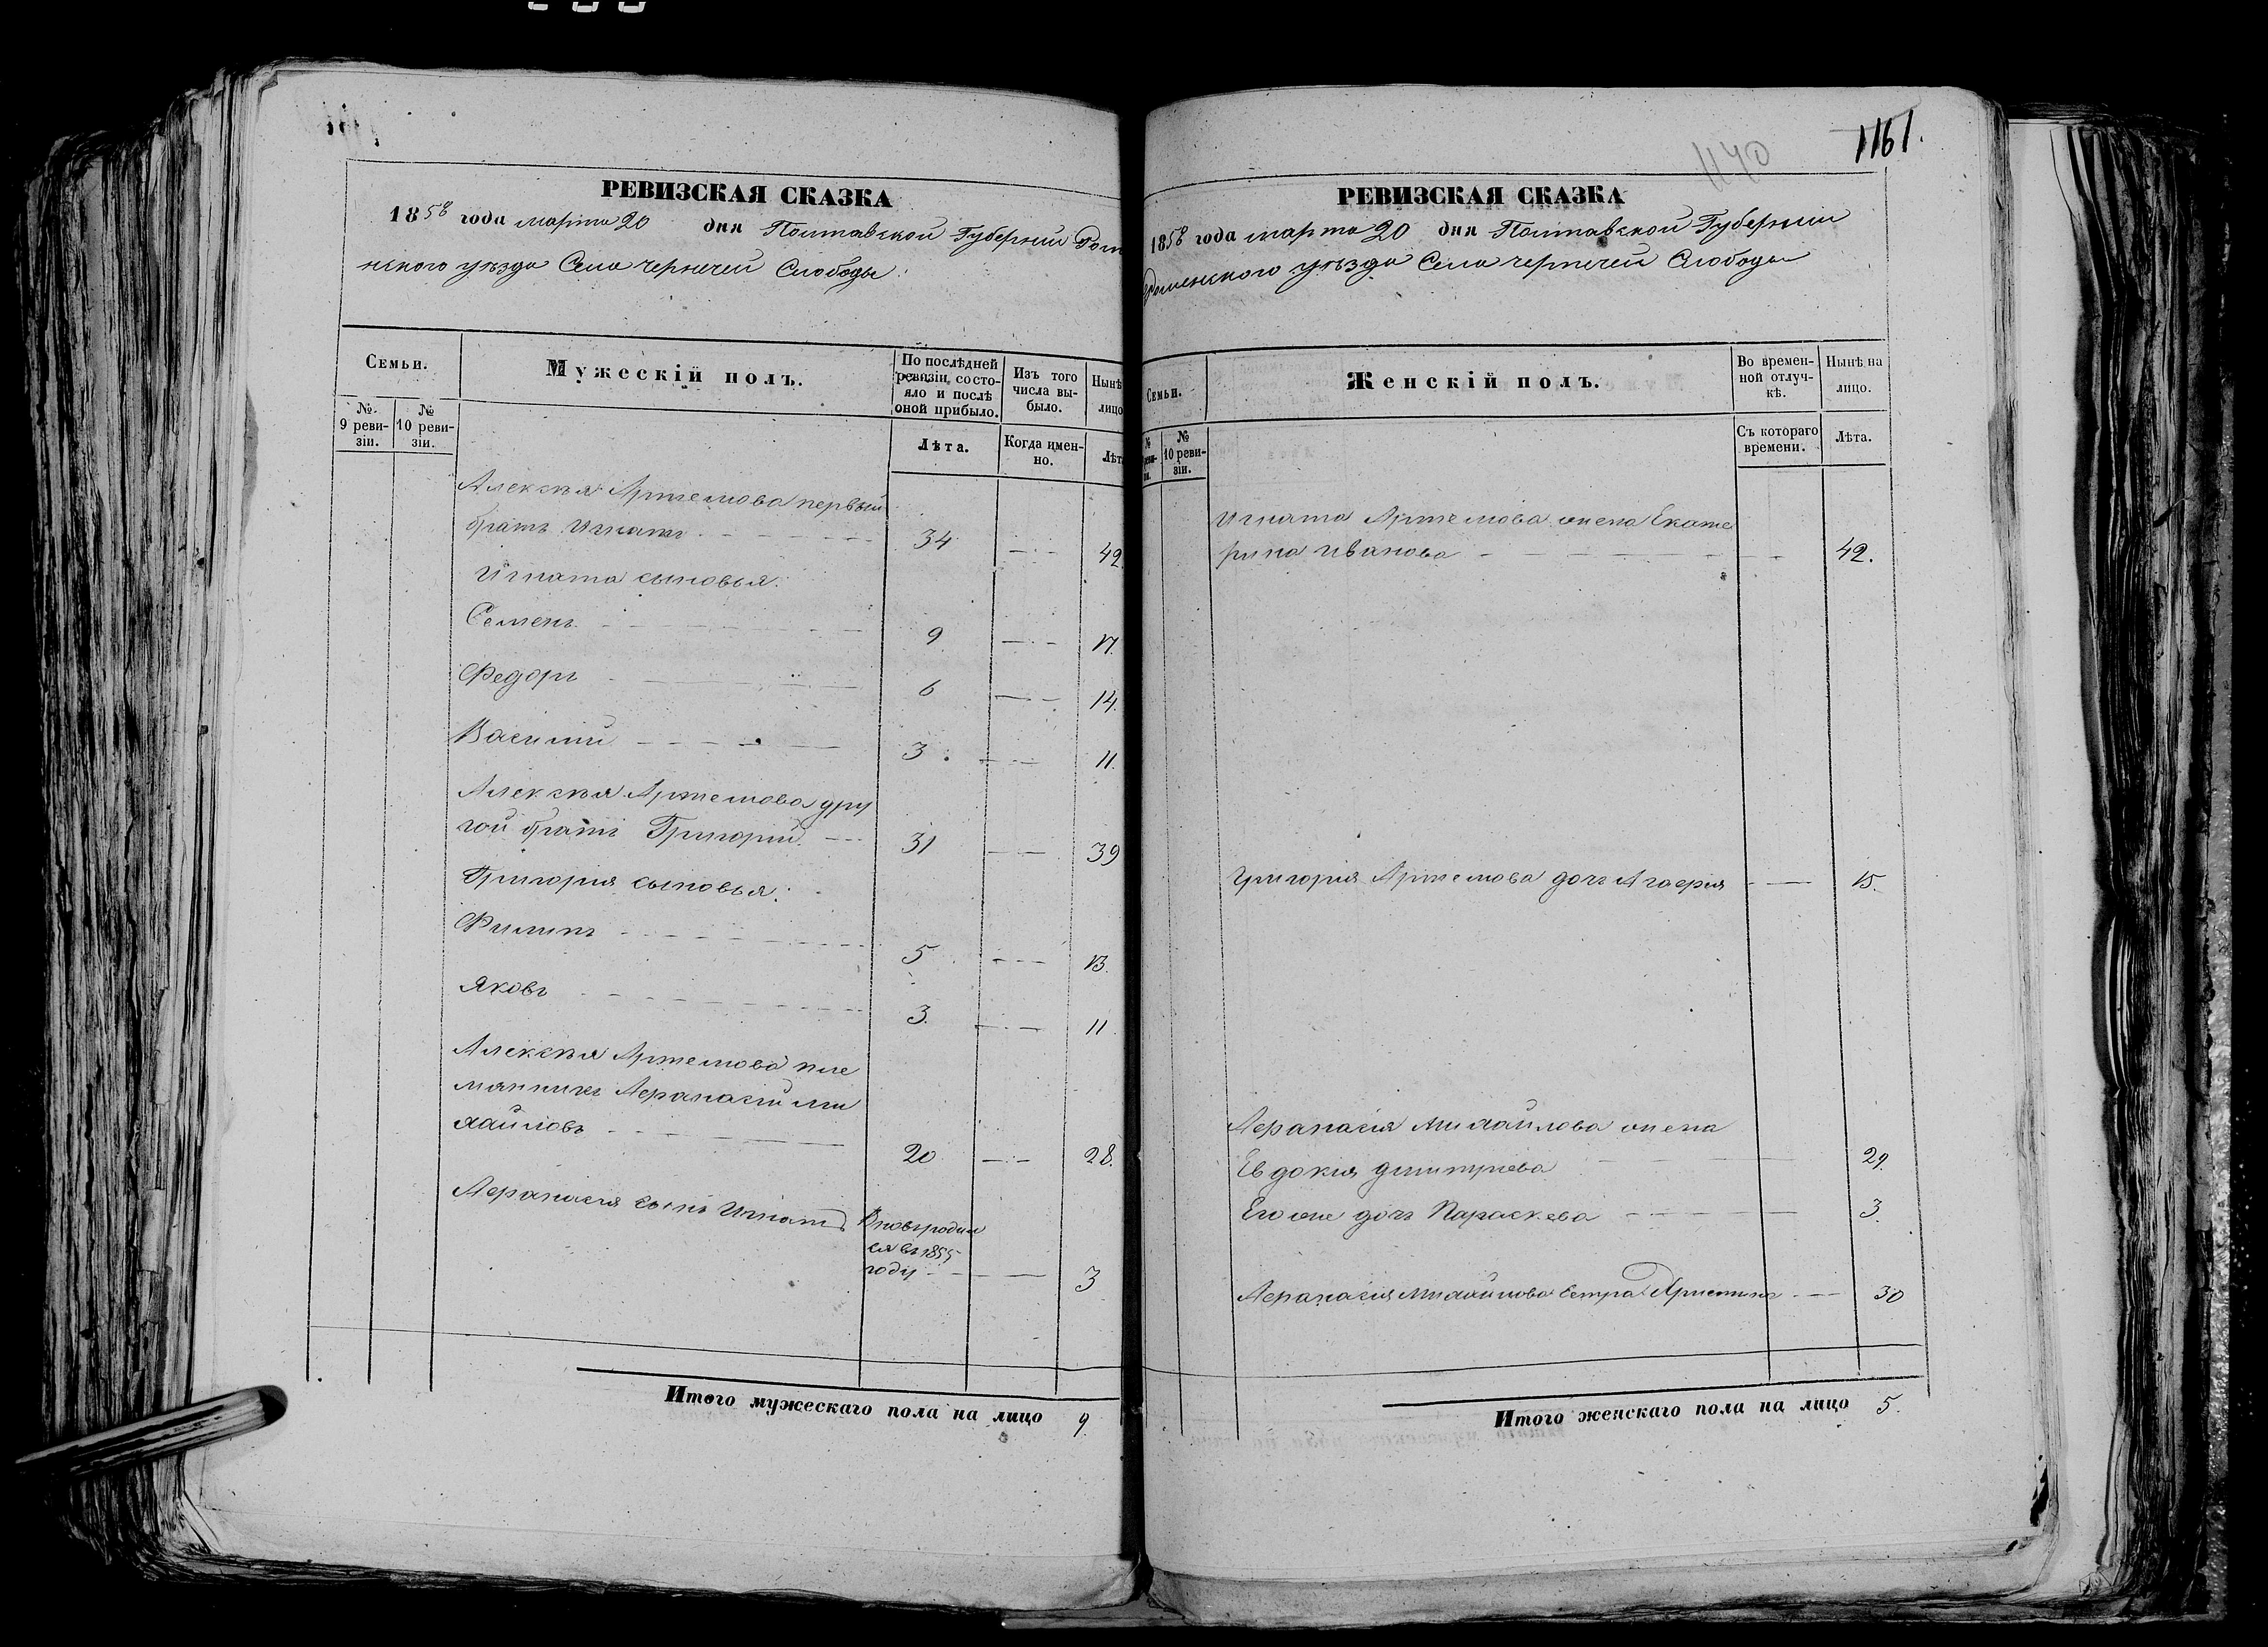 РЕВИЗСКАЯ СКАЗКА
1858 года марта 20 дня Полтавской Губернии Ром
нского уѣзда Села Чернечей Слободы
Семьи.
Мужескій полъ.
По послѣдней ревизіи состояло и послѣ оной прибыло.
Изъ того числа выбыло.
Нынѣ
лицо
№ 9 ревизіи.
№ 10 ревизіи.
Лѣта.
Когда именно.
Лѣт
Алексѣя Артемова первый
братъ Игнатъ 34 42
Игната сыновья:
Семенъ 9 17.
Федоръ 6 14.
Василий 3 11.
Алексѣя Артемова дру
гой братъ Григорий 31 39
Григория сыновья:
Филипъ 5 13.
Яковъ 3. 11.
Алексѣя Артемова пле
мянникъ Афанасий Ми
хайловъ 20 28.
Афанасия сынъ Игнатъ Вновь родил
ся въ 1855
году 3
Итого мужескаго пола на лицо 9.
1140
1161.
РЕВИЗСКАЯ СКАЗКА
1858 года марта 20 дня Полтавской Губернии
Роменского уѣзда Села Чернечей Слободы
Семьи.
Женскій полъ.
Во временной отлучкѣ.
Нынѣ на лицо.
№
№ 10 ревизіи.
Съ котораго времени.
Лѣта.
Игната Артемова жена Екате
рина Иванова 42.
Григория Артемова дочь Агафия 15.
Афанасия Михайлова жена
Евдокия Дмитриева 29.
Его же дочь Параскева 3.
Афанасия Михайлова сестра Христина 30
Итого женскаго пола на лицо 5.